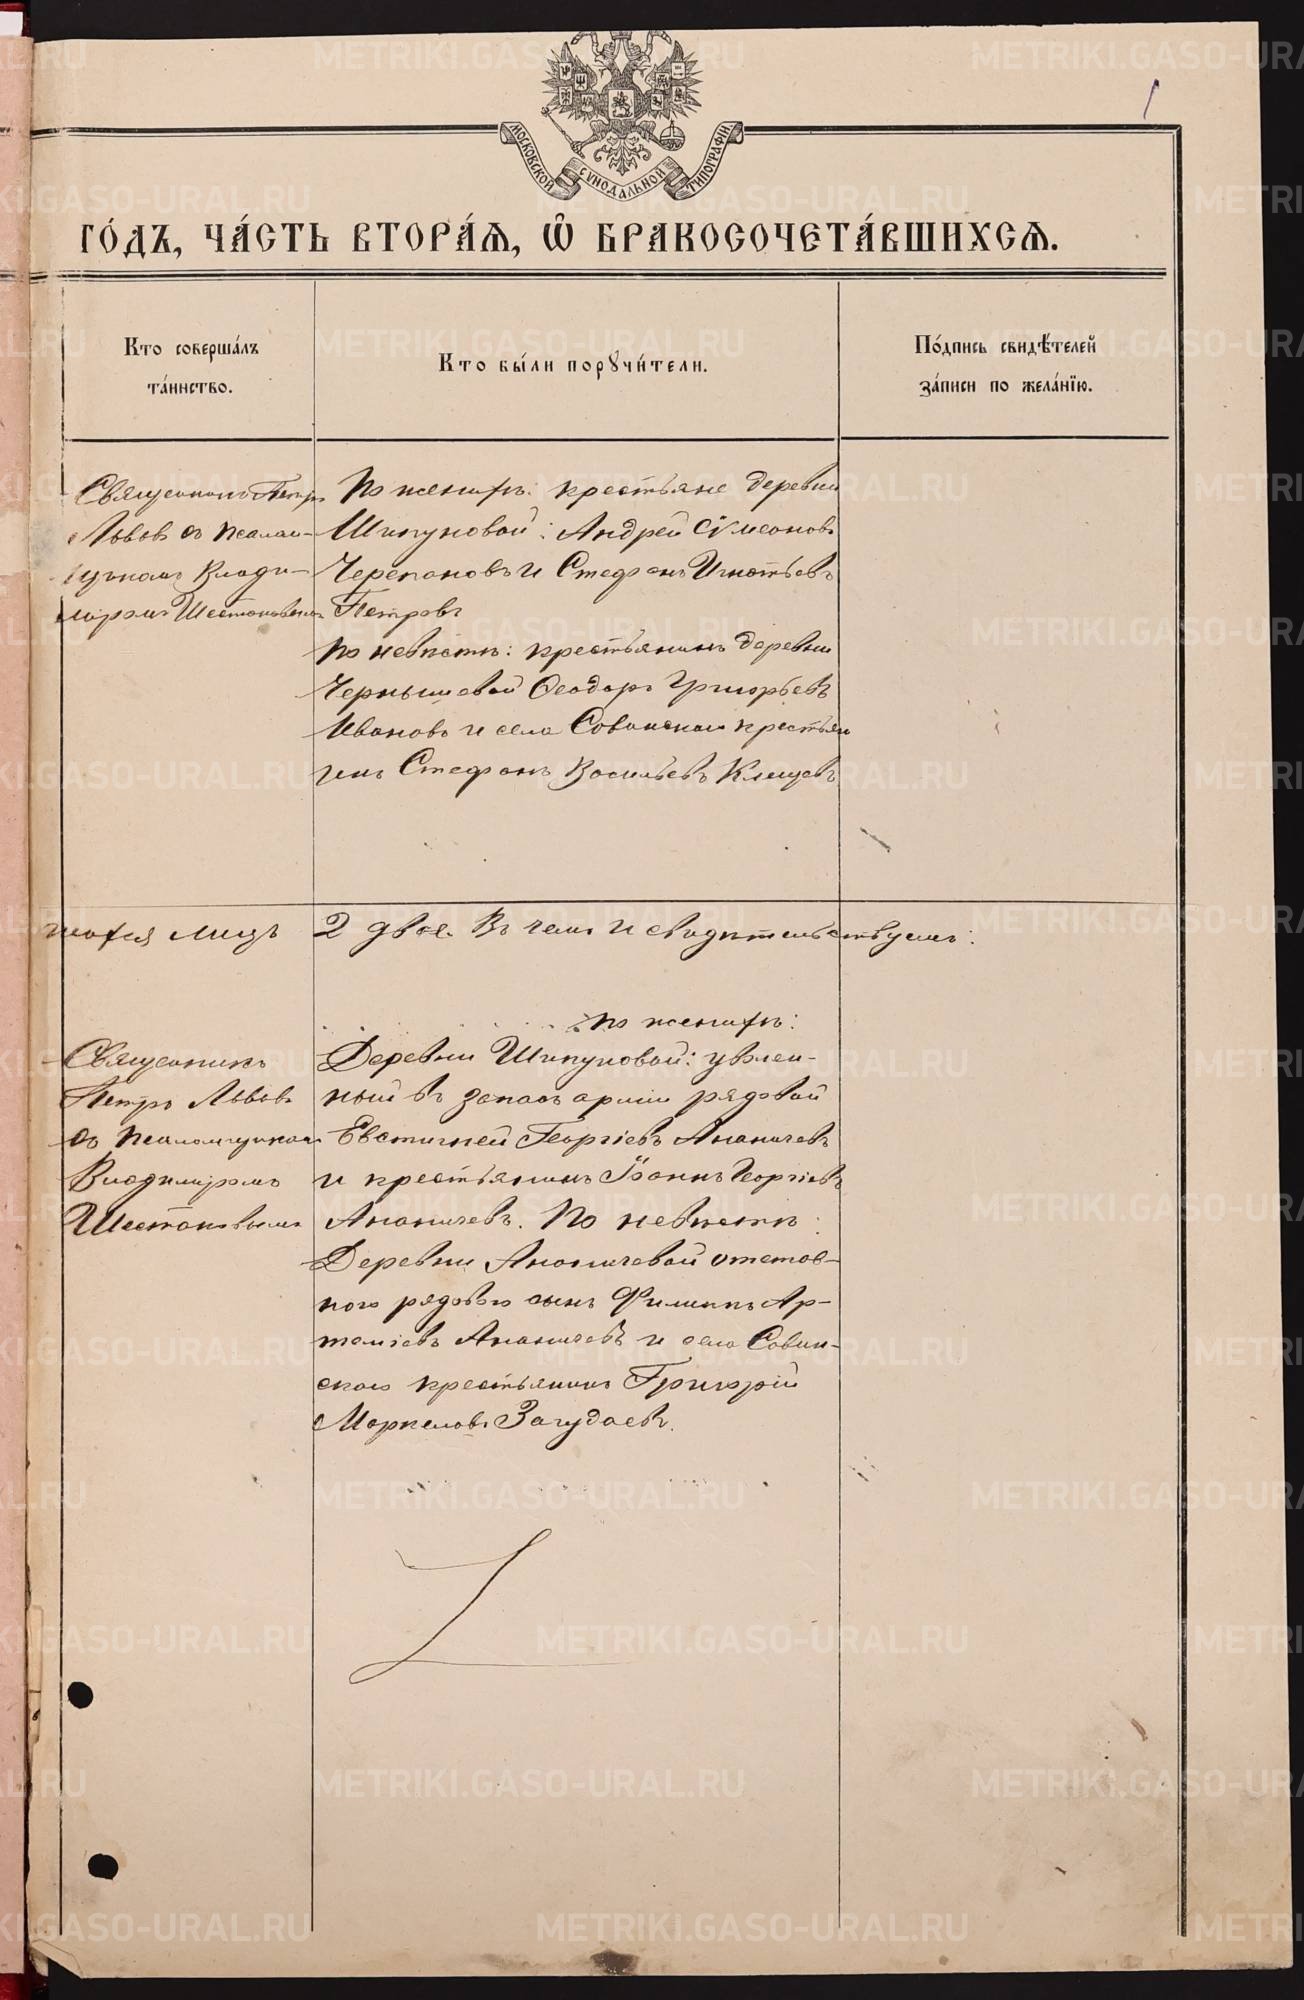 МОСКОВСКОЙ СѴНОДАЛЬНОЙ ТИПОГРАФІИ
ГО́ДЪ, ЧА́СТЬ ВТОРА́Я, Ѽ БРАКОСОЧЕТА́ВШИХСЯ.
Кто соверша́лъ
та́инство.
Кто бы́ли порꙋчи́тели.
По́дпись свидѣ́телей
за́писи по жела́нїю.
Священникъ Петръ
Львовъ съ псалом-
щикомъ Влади-
міромъ Шестаковымъ
По женихѣ: крестьяне деревни
Шипуновой: Андрей Сѵмеоновъ
Черепановъ и Стефанъ Игнатьевъ
Петровъ
По невѣстѣ: крестьянинъ деревни
Чернышевой Ѳеодоръ Григорьевъ
Ивановъ и села Совинскаго крестьян
инъ Стефанъ Васильевъ Клещевъ
шихся лицъ 2 двое. Въ чемъ и свидѣтельствуемъ:
Священникъ
Петръ Львовъ
съ псаломщикомъ
Владиміромъ
Шестаковымъ
По женихѣ:
Деревни Шипуновой: уволен-
ный въ запасъ арміи рядовой
Евстигней Георгіевъ Ананичевъ
и крестьянинъ Іоаннъ Георгіевъ
Ананичевъ. По невѣстѣ:
Деревни Ананичевой отстав-
ного рядового сынъ Филиппъ Ар-
теміевъ Ананичевъ и села Совин-
скаго крестьянинъ Григорій
Маркеловъ Загудаевъ.
METRIKI.GASO-URAL.RU